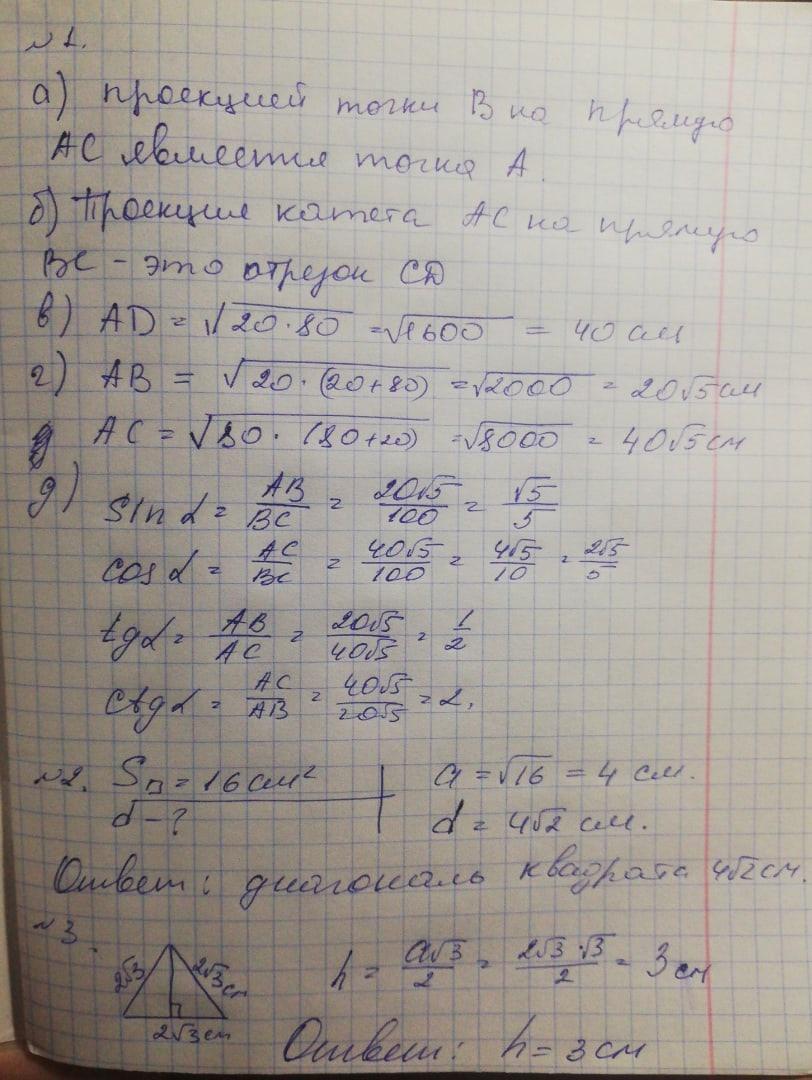 №1.
а) проекцией точки В на прямую
АС является точка А.
б) Проекция катета АС на прямую
ВС - это отрезок СД
в) AD = √20·80 = √1600 = 40 см
г) AB = √20·(20+80) = √2000 = 20√5 см
AC = √80·(80+20) = √8000 = 40√5 см
д) sin α = AB/BC = 20√5/100 = √5/5
cos α = AC/BC = 40√5/100 = 4√5/10 = 2√5/5
tg α = AB/AC = 20√5/40√5 = 1/2
ctg α = AC/AB = 40√5/20√5 = 2.
№2. S□ = 16 см² a = √16 = 4 см.
d - ? d = 4√2 см.
Ответ: диагональ квадрата 4√2 см.
№3.
2√3 2√3 см h = a√3/2 = 2√3·√3/2 = 3 см
2√3 см
Ответ: h = 3 см